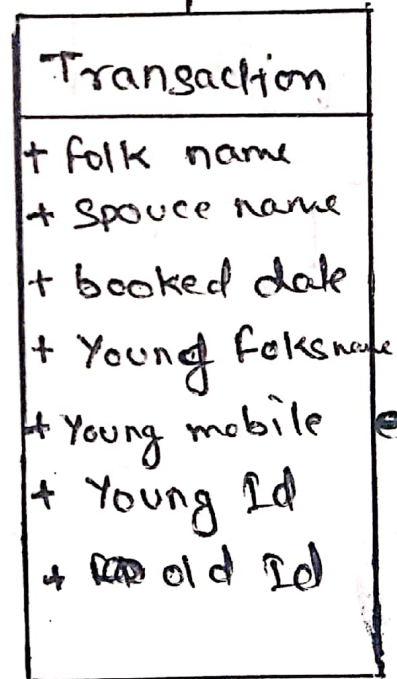 Transaction
+ folk name
+ Spouce name
+ booked date
+ Young foks name
+ Young mobile
+ Young Id
+ old Id